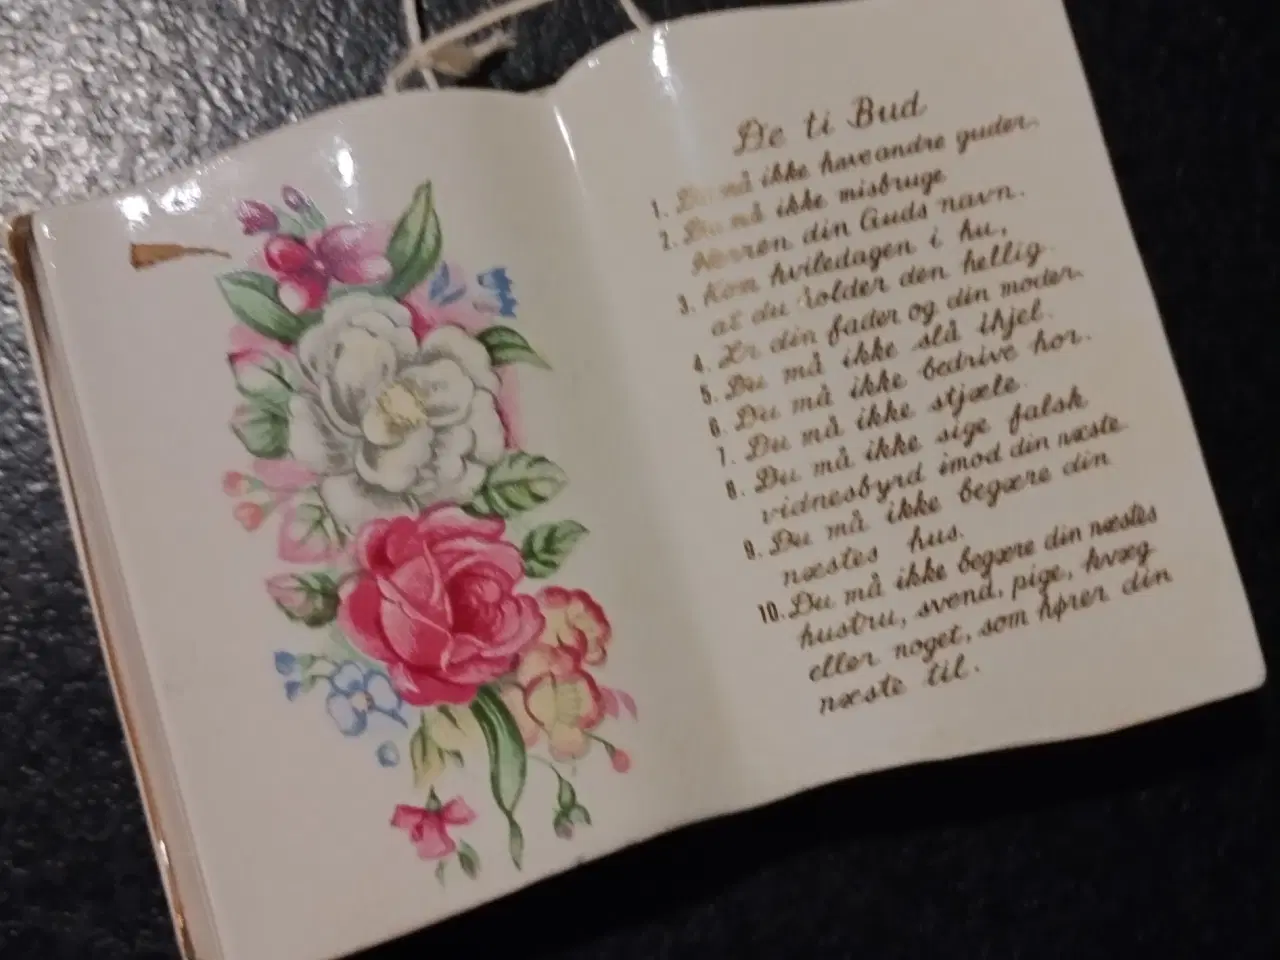 De ti Bud
1. Du må ikke have andre guder.
2. Du må ikke misbruge
Herren din Guds navn.
3. Kom hviledagen i hu,
at du holder den hellig.
4. Ær din fader og din moder.
5. Du må ikke slå ihjel.
6. Du må ikke bedrive hor.
7. Du må ikke stjæle.
8. Du må ikke sige falsk
vidnesbyrd imod din næste.
9. Du må ikke begære din
næstes hus.
10. Du må ikke begære din næstes
hustru, svend, pige, kvæg
eller noget, som hører din
næste til.